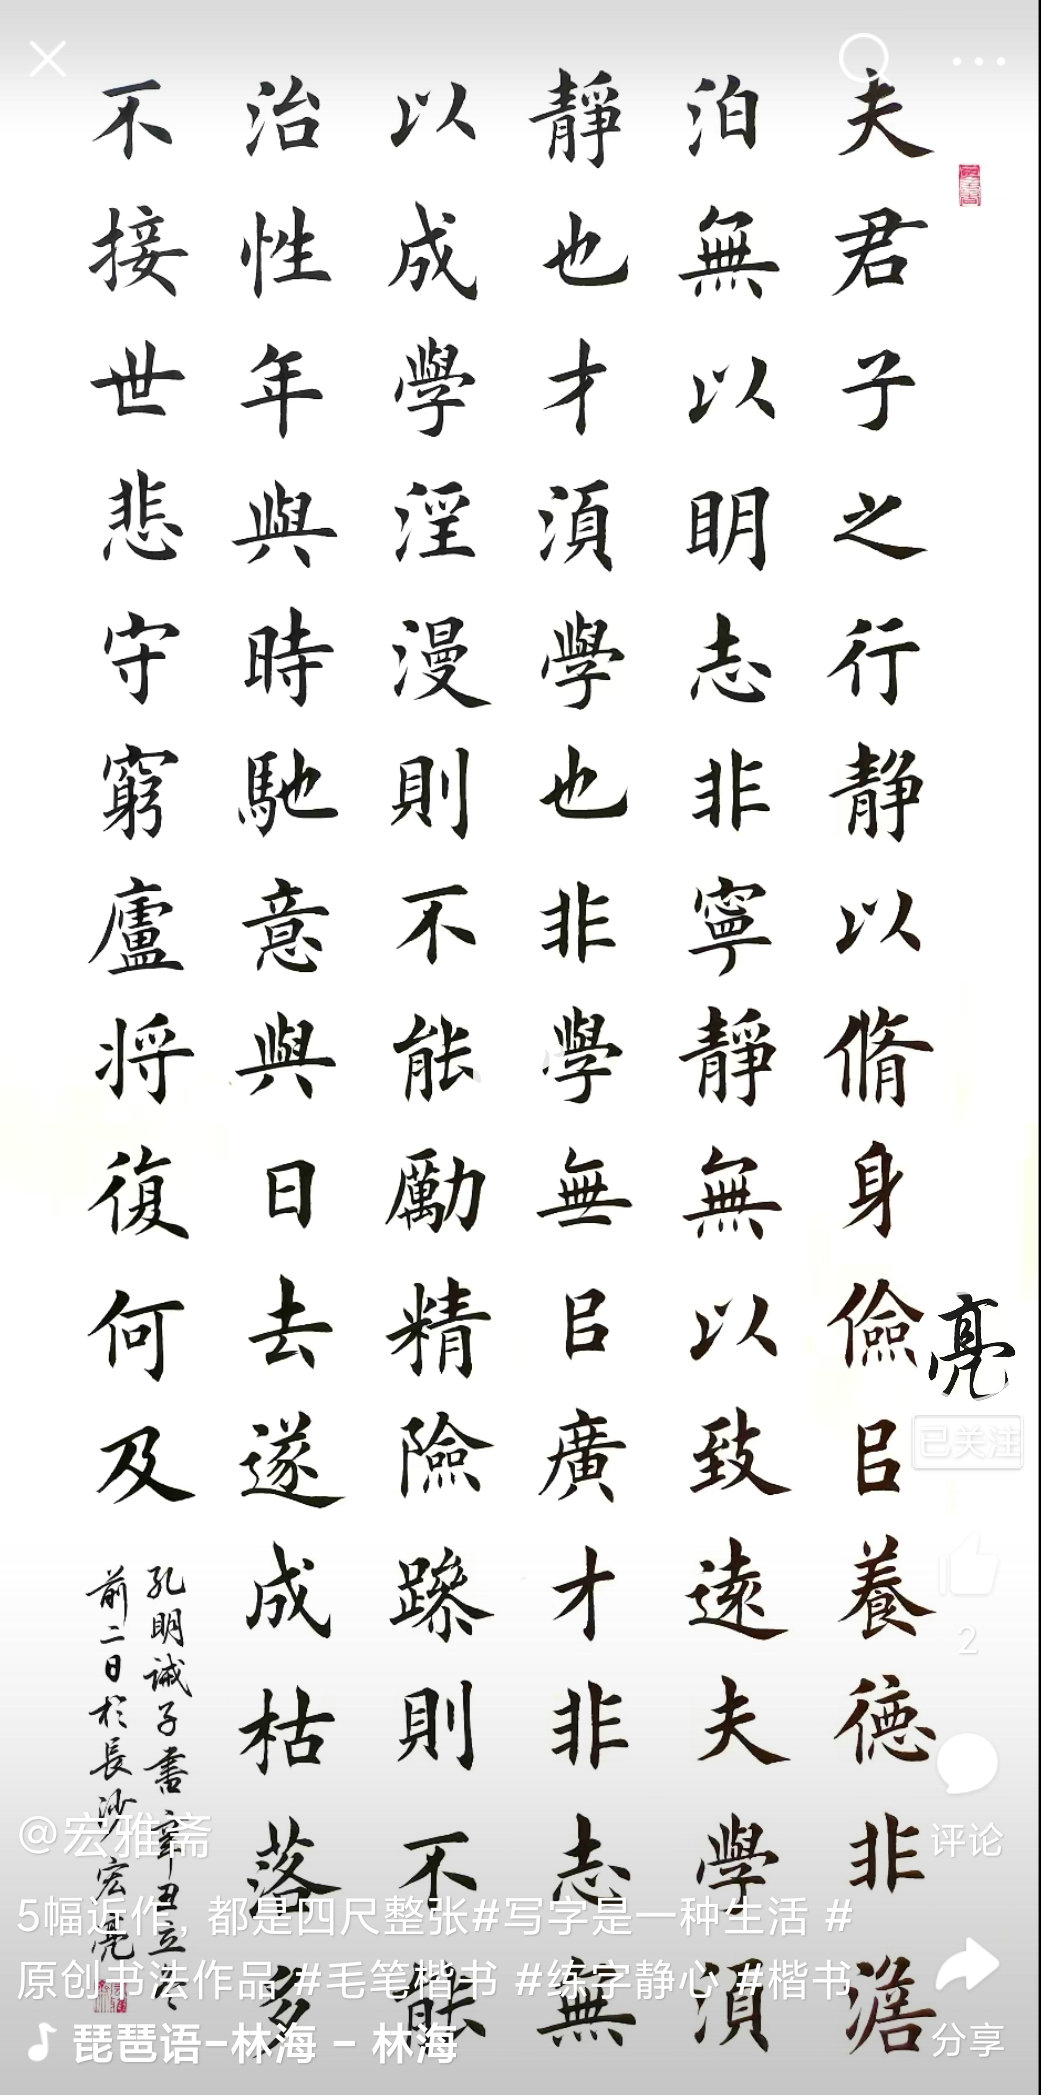 夫君子之行静以脩身儉㠯養德非澹
泊無以明志非寧靜無以致遠夫學須
靜也才須學也非學無㠯廣才非志無
以成學淫漫則不能勵精險躁則不能
治性年與時馳意與日去遂成枯落多
不接世悲守窮廬將復何及
孔明誡子書辛丑立冬
前二日於長沙宏亮
亮
已关注
2
评论
分享
@宏雅斋
5幅近作，都是四尺整张#写字是一种生活 #
原创书法作品 #毛笔楷书 #练字静心 #楷书
琵琶语-林海 - 林海